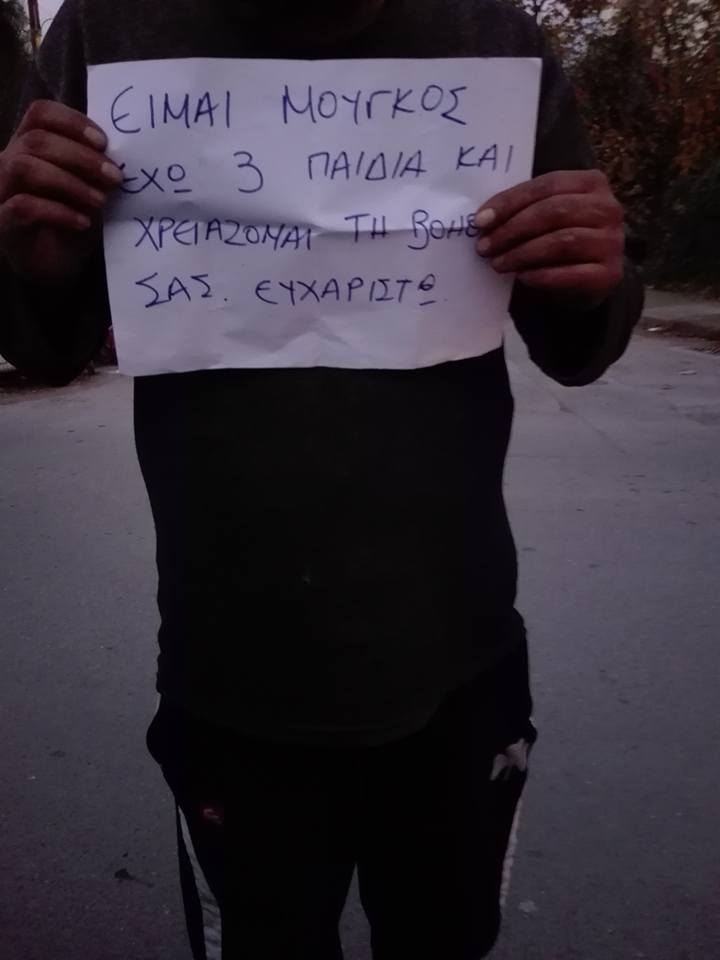 ΕΙΜΑΙ ΜΟΥΓΚΟΣ
ΕΧΩ 3 ΠΑΙΔΙΑ ΚΑΙ
ΧΡΕΙΑΖΟΜΑΙ ΤΗ ΒΟΗΘ
ΣΑΣ. ΕΥΧΑΡΙΣΤΩ.